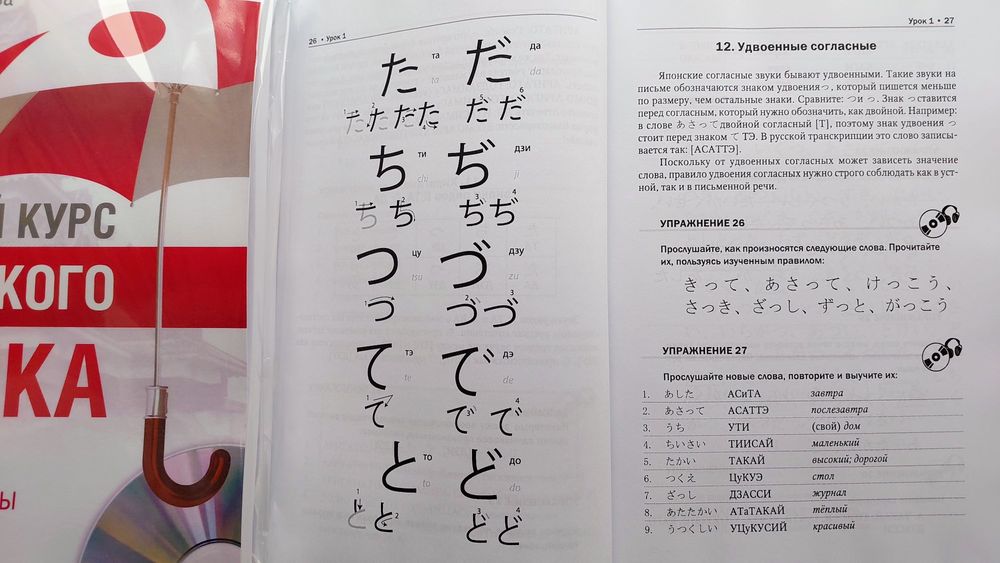 Й КУРС
КОГО
КА
Ы
26 • Урок 1
た та だ да
ta da
1 2 3 4 5 6
た た た た だ だ
ち ти ぢ дзи
chi ji
1 2 3 4
ち ち ぢ ぢ
つ цу づ дзу
tsu zu
1 2 3
つ づ づ
て тэ で дэ
te de
1 2 3 4
て で で
と то ど до
to do
1 2 3 4
と と ど ど
Урок 1 • 27
12. Удвоенные согласные
Японские согласные звуки бывают удвоенными. Такие звуки на
письме обозначаются знаком удвоения っ, который пишется меньше
по размеру, чем остальные знаки. Сравните: つ и っ. Знак っ ставится
перед согласным, который нужно обозначить, как двойной. Например:
в слове あさって двойной согласный [Т], поэтому знак удвоения っ
стоит перед знаком て ТЭ. В русской транскрипции это слово записы-
вается так: [АСАТТЭ].
Поскольку от удвоенных согласных может зависеть значение
слова, правило удвоения согласных нужно строго соблюдать как в уст-
ной, так и в письменной речи.
УПРАЖНЕНИЕ 26
Прослушайте, как произносятся следующие слова. Прочитайте
их, пользуясь изученным правилом:
きって、あさって、けっこう、
さっき、ざっし、ずっと、がっこう
УПРАЖНЕНИЕ 27
Прослушайте новые слова, повторите и выучите их:
1. あした АСиТА завтра
2. あさって АСАТТЭ послезавтра
3. うち УТИ (свой) дом
4. ちいさい ТИИСАЙ маленький
5. たかい ТАКАЙ высокий; дорогой
6. つくえ ЦуКУЭ стол
7. ざっし ДЗАССИ журнал
8. あたたかい АТаТАКАЙ тёплый
9. うつくしい УЦуКУСИЙ красивый